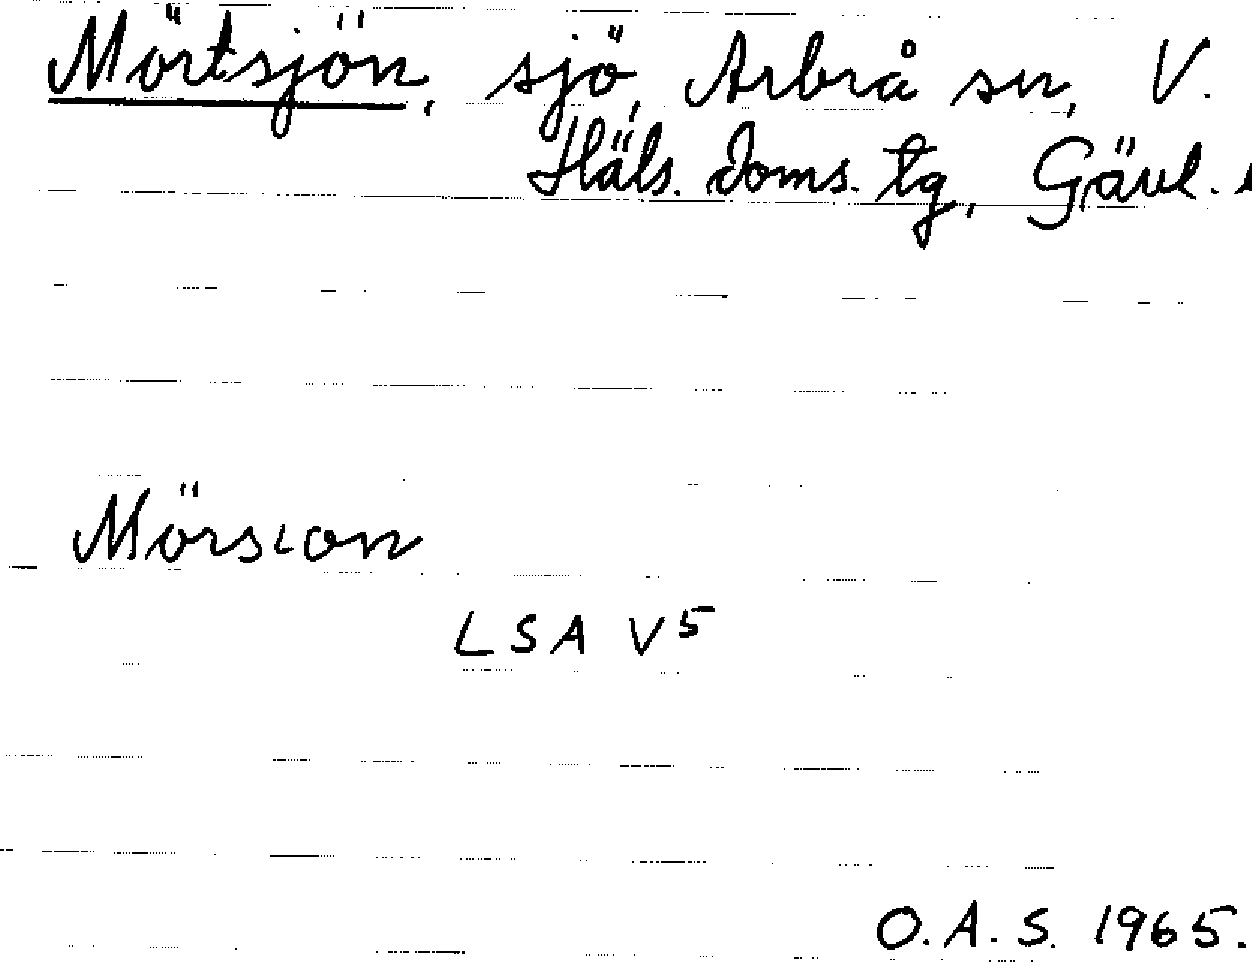 Mörtsjön, sjö, Arbrå sn, V.
Häls. doms. tg, Gävl.
Mörsion
LSA V5
O.A.S. 1965.